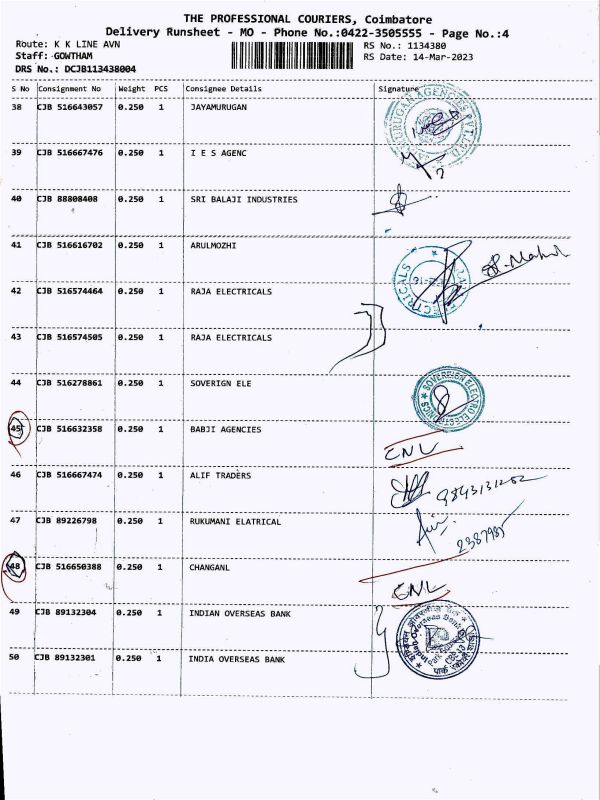 THE PROFESSIONAL COURIERS, Coimbatore
Delivery Runsheet - MO - Phone No.:0422-3505555 - Page No.:4
Route: K K LINE AVN RS No.: 1134380
Staff: GOWTHAM RS Date: 14-Mar-2023
DRS No.: DCJB113438004
S No Consignment No Weight PCS Consignee Details Signature
38 CJB 516643057 0.250 1 JAYAMURUGAN
39 CJB 516667476 0.250 1 I E S AGENC
40 CJB 88808408 0.250 1 SRI BALAJI INDUSTRIES
41 CJB 516616702 0.250 1 ARULMOZHI
42 CJB 516574464 0.250 1 RAJA ELECTRICALS
43 CJB 516574505 0.250 1 RAJA ELECTRICALS
44 CJB 516278861 0.250 1 SOVERIGN ELE
SOVEREIGN ELECTRO ELECTRONICS
45 CJB 516632358 0.250 1 BABJI AGENCIES
CNL
46 CJB 516667474 0.250 1 ALIF TRADERS
47 CJB 89226798 0.250 1 RUKUMANI ELATRICAL
48 CJB 516650388 0.250 1 CHANGANL
CNL
49 CJB 89132304 0.250 1 INDIAN OVERSEAS BANK
Indian Overseas Bank
50 CJB 89132301 0.250 1 INDIA OVERSEAS BANK